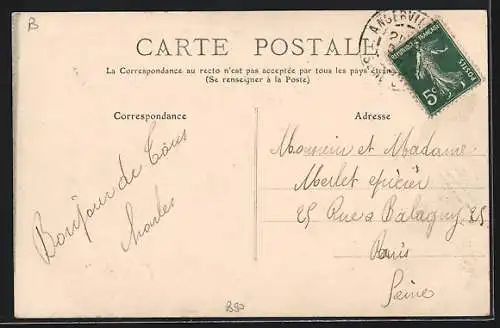 B
CARTE POSTALE
La Correspondance au recto n'est pas acceptée par tous les pays
(Se renseigner à la Poste)
ANGERVIL
REPUBLIQUE FRANÇAISE
POSTES
5c
Correspondance
Bonjour de Tous
Charles
Adresse
Monsieur et Madame
Merlet épicier
25 Rue a Balagny 25
Paris
Seine
B90